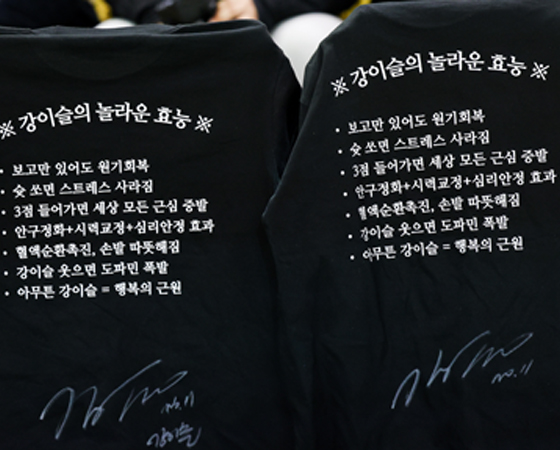 ※ 강이슬의 놀라운 효능 ※
• 보고만 있어도 원기회복
• 슛 쏘면 스트레스 사라짐
• 3점 들어가면 세상 모든 근심 증발
• 안구정화+시력교정+심리안정 효과
• 혈액순환촉진, 손발 따뜻해짐
• 강이슬 웃으면 도파민 폭발
• 아무튼 강이슬 = 행복의 근원
no.11
강이슬
※ 강이슬의 놀라운 효능 ※
• 보고만 있어도 원기회복
• 슛 쏘면 스트레스 사라짐
• 3점 들어가면 세상 모든 근심 증발
• 안구정화+시력교정+심리안정 효과
• 혈액순환촉진, 손발 따뜻해짐
• 강이슬 웃으면 도파민 폭발
• 아무튼 강이슬 = 행복의 근원
no.11